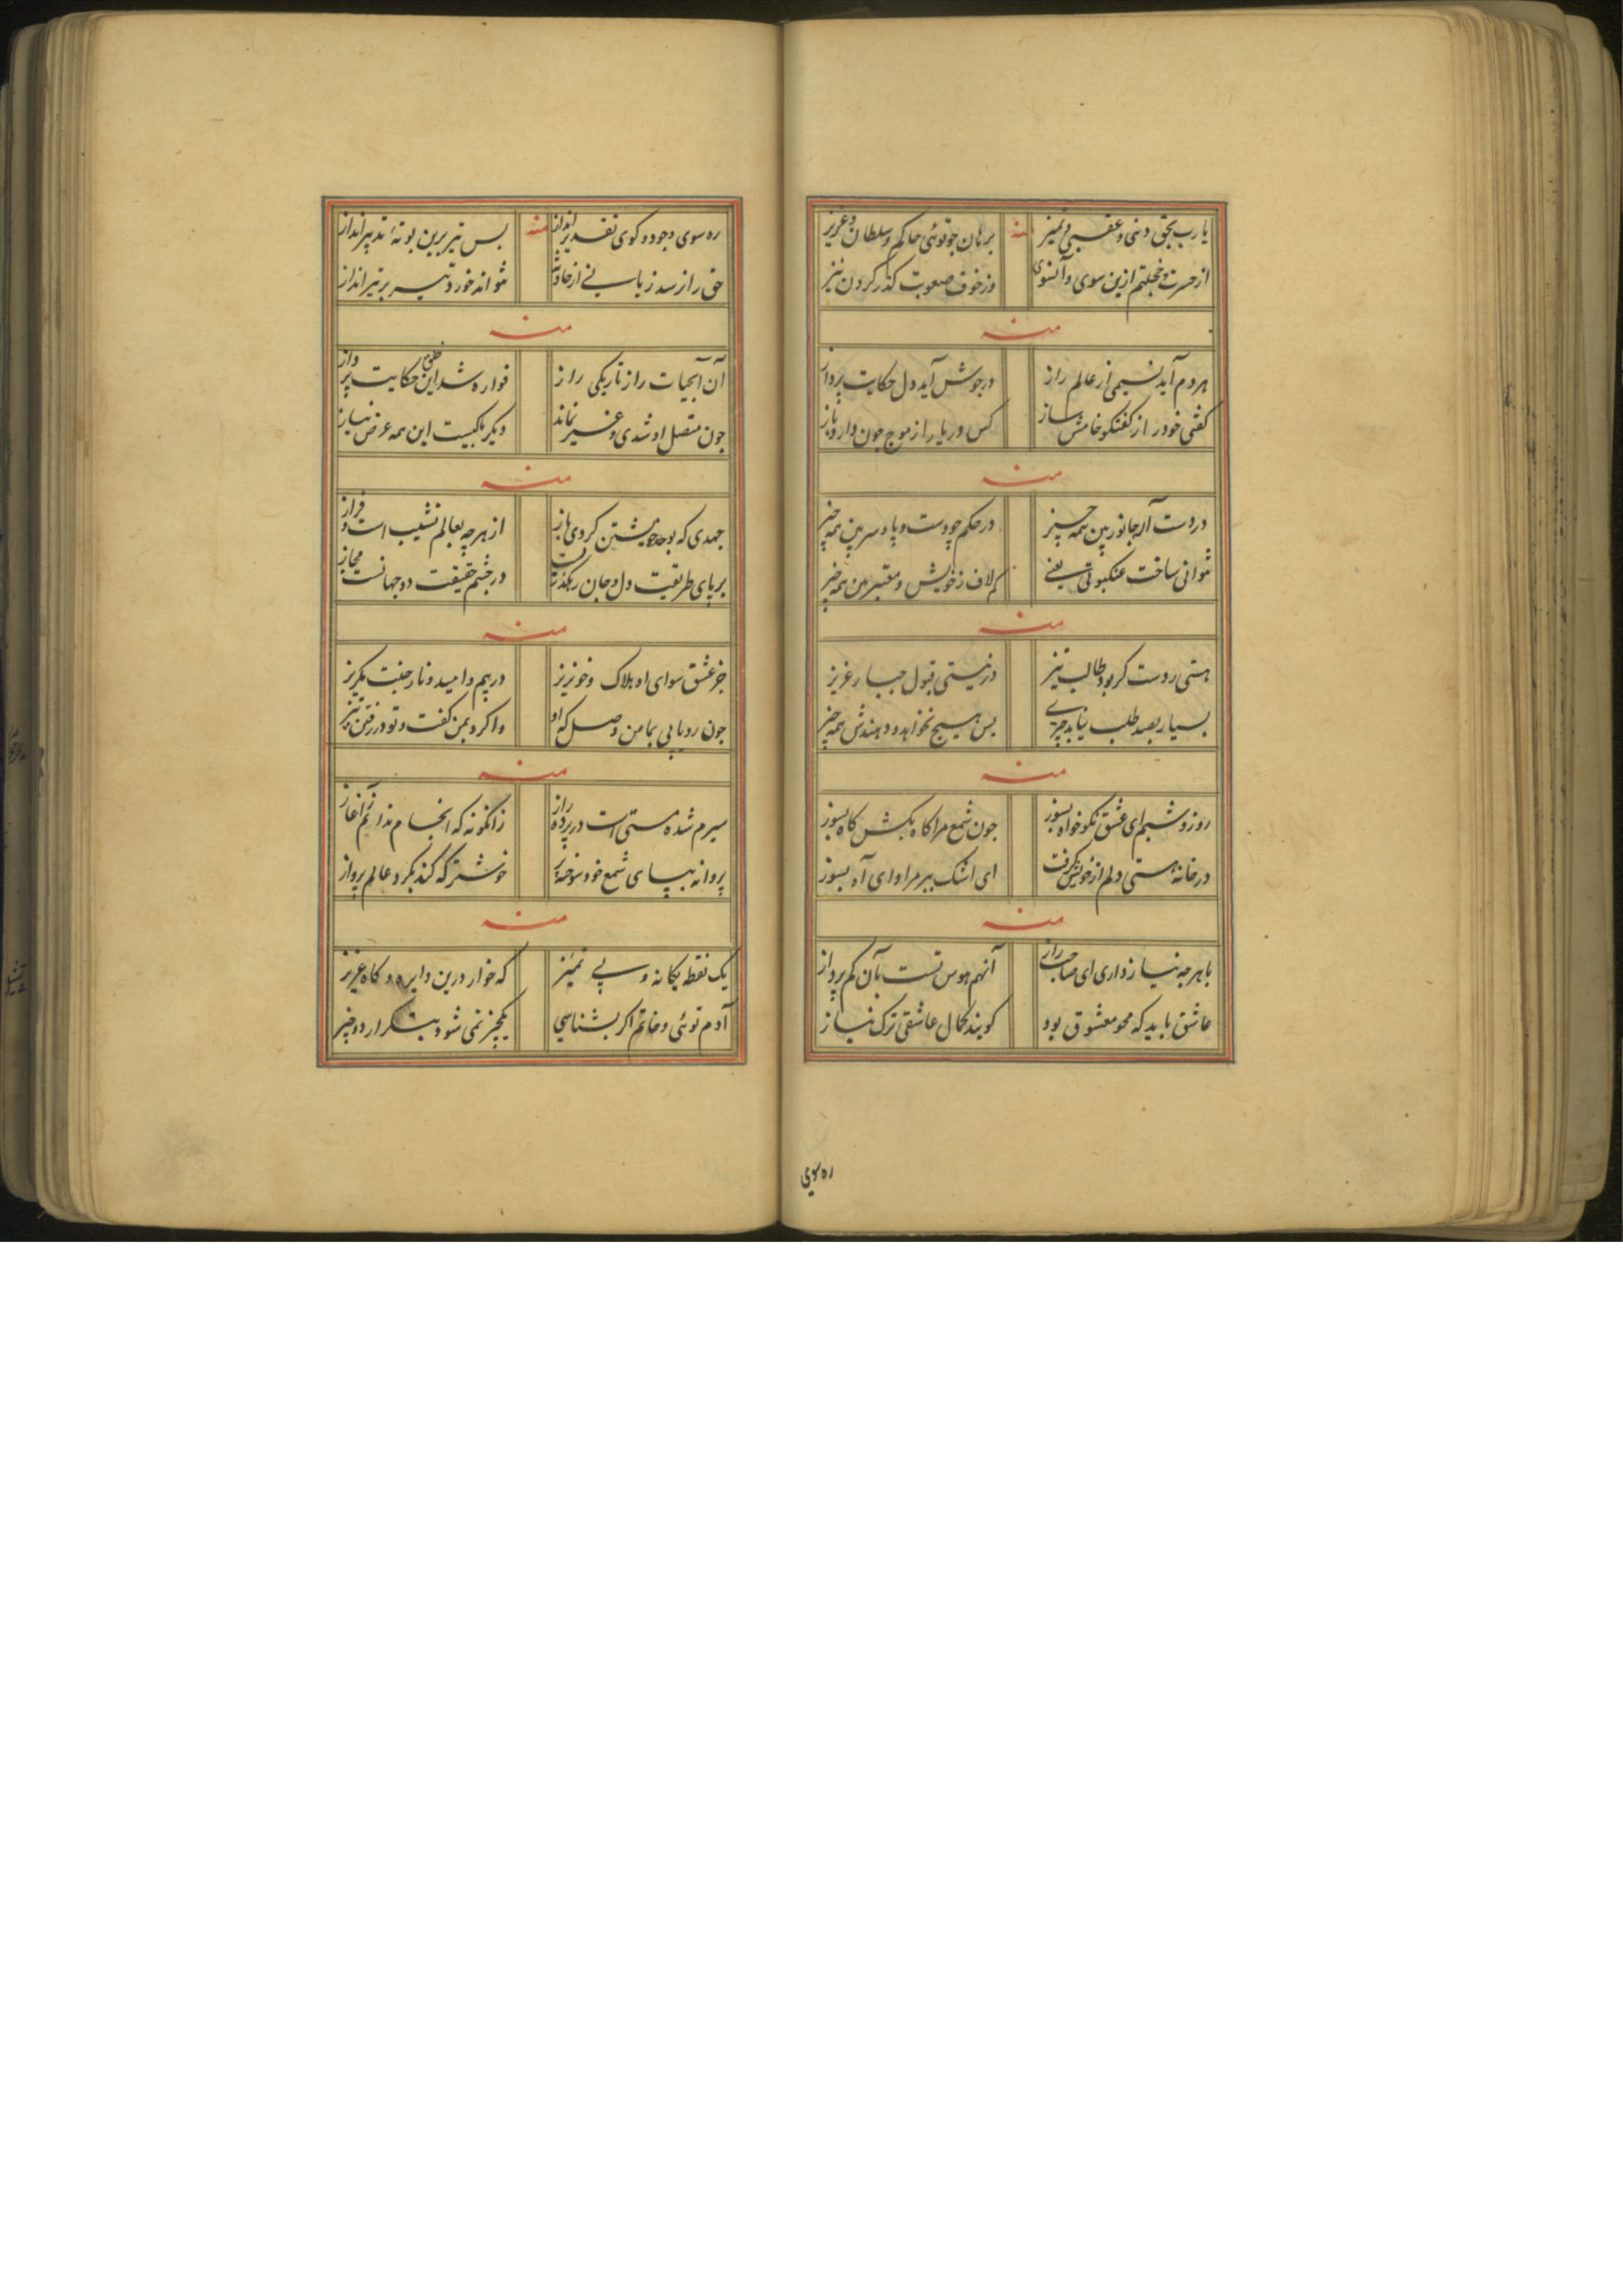 یا رب بحق دنیی و عقبی و تمیز
منه
برهان چو توئی حاکم و سلطان و عزیز
از حسرت و خجلتم ازین سوی و آنسوی
وز خوف صعوبت گذر کردن نیز
منه
هر دم آید نسیمی از عالم راز
در جوش آید دل حکایت پرداز
گفتی خود را از گفتگو خامش ساز
کس دریا را از موج چون دارد باز
منه
در دست آر جانور بین همه چیز
در حکم چو دست و پا و سر بین همه چیز
نتوانی ساخت عنکبوتی یعنی
کم لاف ز خویش و معتبر بین همه چیز
منه
هستی ردست گر بود طالب نیز
در نیستی قبول جبار عزیز
بسیار بصد طلب نیابد چیزی
پس هیچ نخواهد و دهندش همه چیز
منه
روز و شبم ای عشق نکو خواه بسوز
چون شمع مرا گاه بکش گاه بسوز
در خانه هستی دلم از خویش گرفت
ای اشک ببر مرا و ای آه بسوز
منه
با هر چه نیاز داری ای صاحب راز
آنهم هوس تست بآن کم پرداز
عاشق باید که محو معشوق بود
گویند کمال عاشقی ترک نیاز
ره سوی
ره سوی وجود و کوی تقدیر انداز
منه
بس تیر برین بوته تدبیر انداز
حق را نرسد زیانی از حادثه
نتواند خورد تیر بر تیرانداز
منه
آن آبحیات راز تاریکی راز
فواره شد این خلق حکایت پرداز
چون متصل او شدی و غیر نماند
دیگر با کیست این همه عرض نیاز
منه
جهدی که بوحد خویشتن کردی باز
از هر چه بعالم نشیب است و فراز
بر پای طریقیت دل و جان رهگذرت
در چشم حقیقت دو جهانست مجاز
منه
جز عشق سوای او هلاک و خونریز
در بیم و امید و نار جنت مگریز
چون رو یابی بما من وصل که او
وا کرد بمن گفت و تو در رفتن تیز
منه
سیرم شده مستی است در پرده راز
زانگونه که انجام ندانم ز آغاز
پروانه بپای شمع خود سوخته پر
خوشتر که کند بگرد عالم پرواز
منه
یک نقطه یگانه و بی تمییز
گه خوار درین دایره و گاه عزیز
آدم توئی و خاتم اگر بشناسی
یکچیز نمی شود بتکرار دو چیز